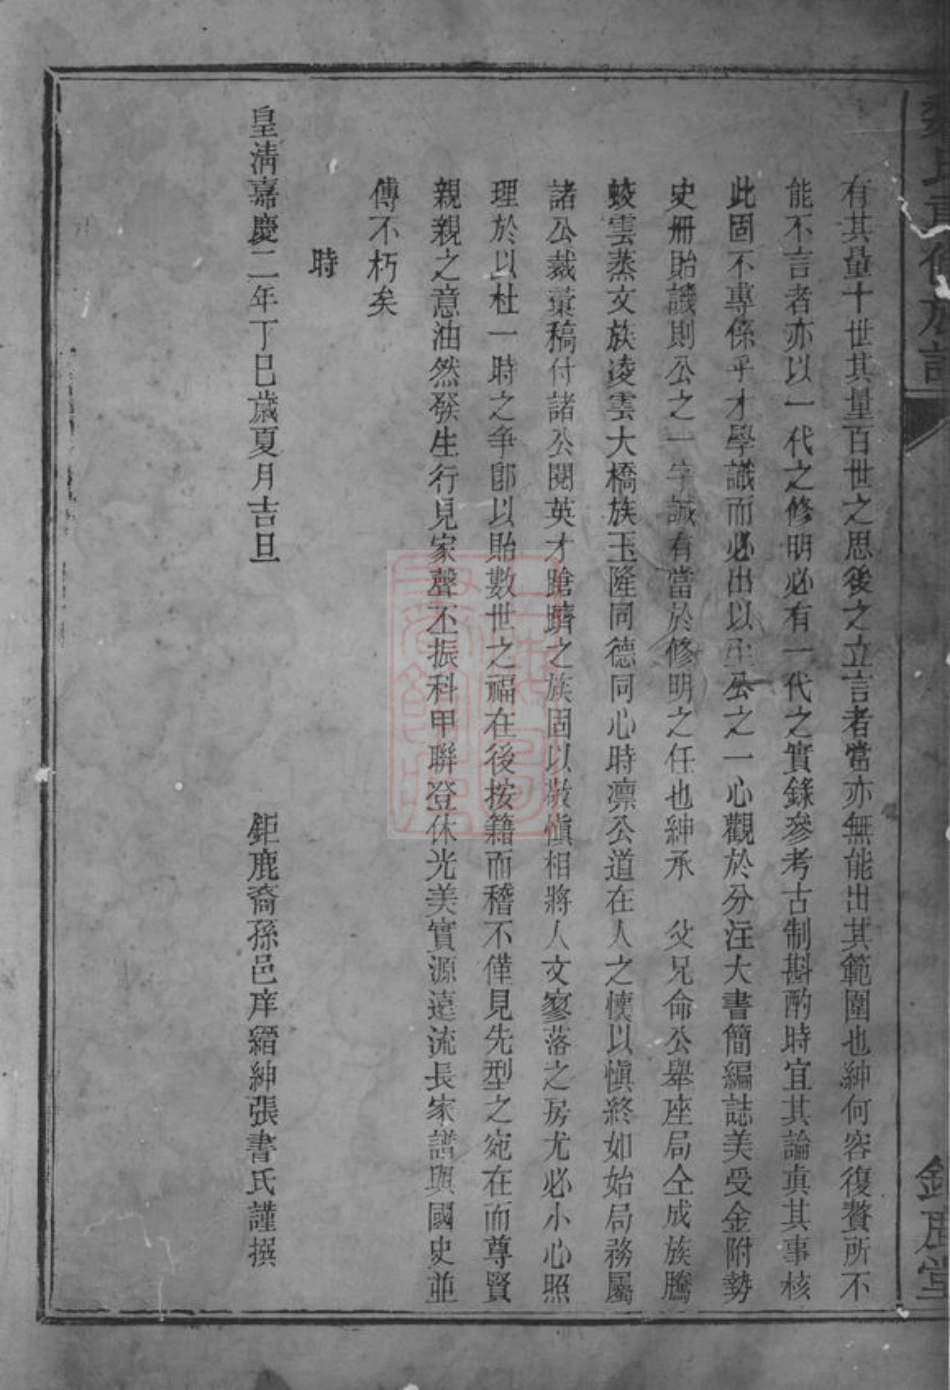 有其量十世其量百世之思後之立言者當亦無能出其範圍也紳何容復贅所不
能不言者亦以一代之修明必有一代之實錄參考古制斟酌時宜其論真其事核
此固不專係乎才學識而必出以至公之一心觀於分注大書簡編誌美受金附勢
史冊貽譏則公之一字誠有當於修明之任也紳承 父兄命公舉座局仝成族騰
蛟雲蒸文族凌雲大橋族玉隆同德同心時凜公道在人之懷以慎終如始局務屬
諸公裁彙稿付諸公閱英才蹌躋之族固以敬慎相將人文寥落之房尤必小心照
理於以杜一時之爭卽以貽數世之福在後按籍而稽不僅見先型之宛在而尊賢
親親之意油然發生行見家聲丕振科甲聯登休光美實源遠流長家譜與國史並
傳不朽矣
時
皇清嘉慶二年丁巳歲夏月吉旦
鉅鹿裔孫邑庠縉紳張書氏謹撰
氏重修族譜
鉅鹿堂